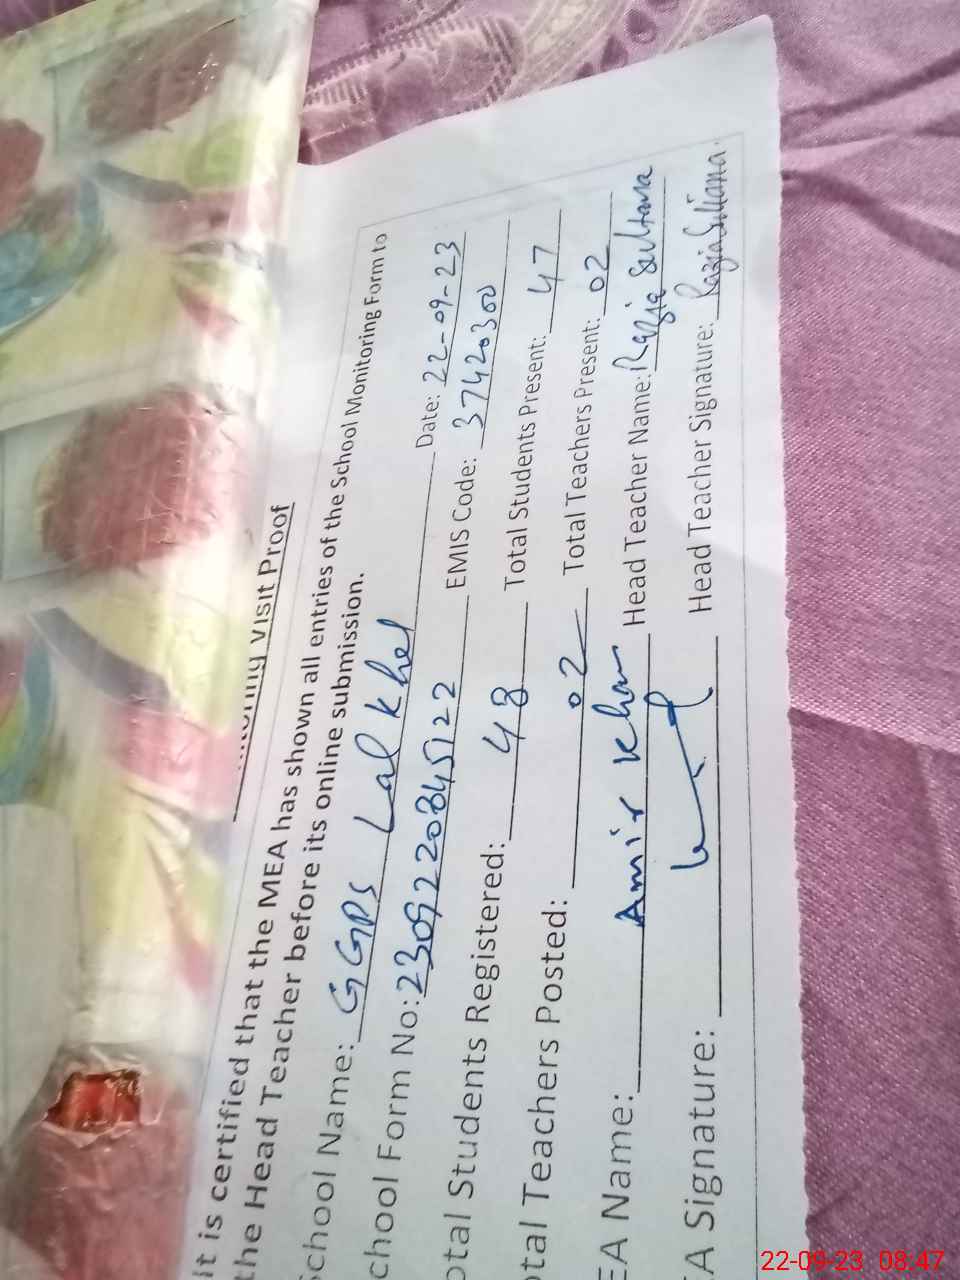 Visit Proof
It is certified that the MEA has shown all entries of the School Monitoring Form to
the Head Teacher before its online submission.
School Name: GGPS Lal Khel Date: 22-09-23
chool Form No: 230922084522 EMIS Code: 37420300
otal Students Registered: 48 Total Students Present: 47
otal Teachers Posted: 02 Total Teachers Present: 02
EA Name: Amir Khan Head Teacher Name: Razia Sultana
EA Signature: Head Teacher Signature: Razia Sultana.
22-09-23 08:47